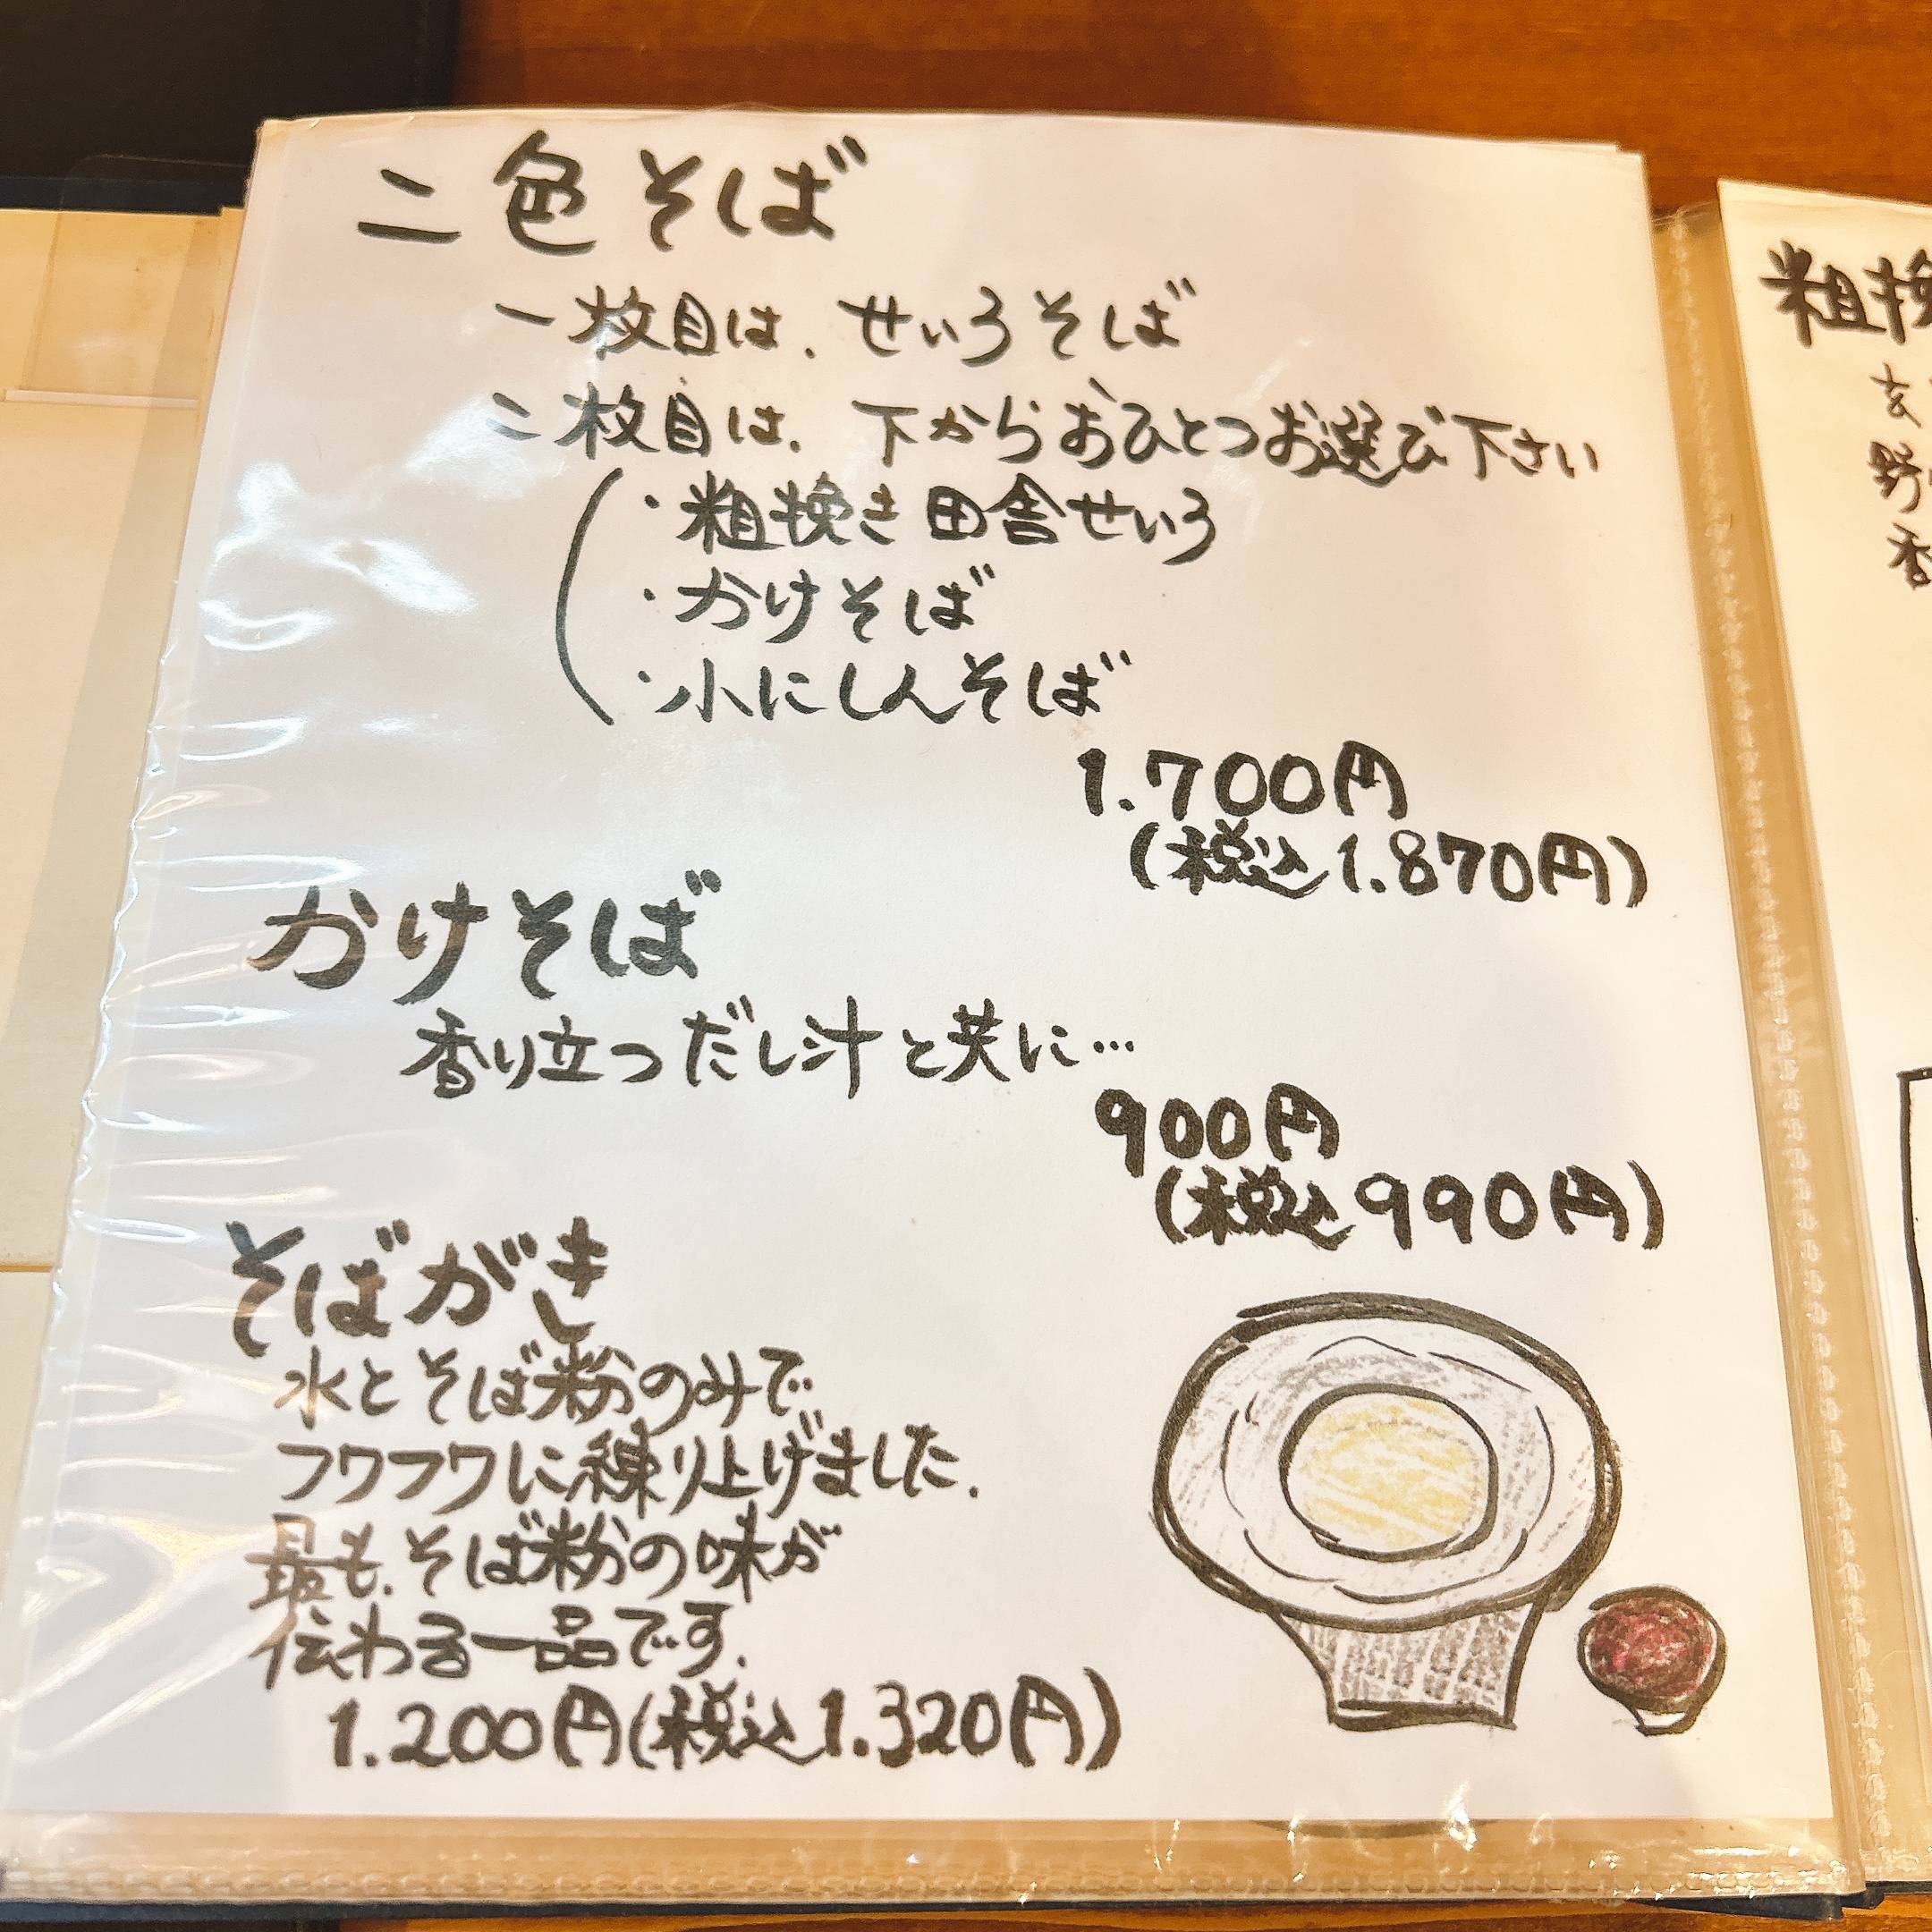 二色そば
一枚目は、せいろそば
二枚目は、下からおひとつお選び下さい
・粗挽き田舎せいろ
・かけそば
・小にしんそば
1.700円
(税込1.870円)
かけそば
香り立つだし汁と共に…
900円
(税込990円)
そばがき
水とそば粉のみで
フワフワに練り上げました.
最も、そば粉の味が
伝わる一品です.
1.200円(税込1.320円)
粗挽
玄
野
香